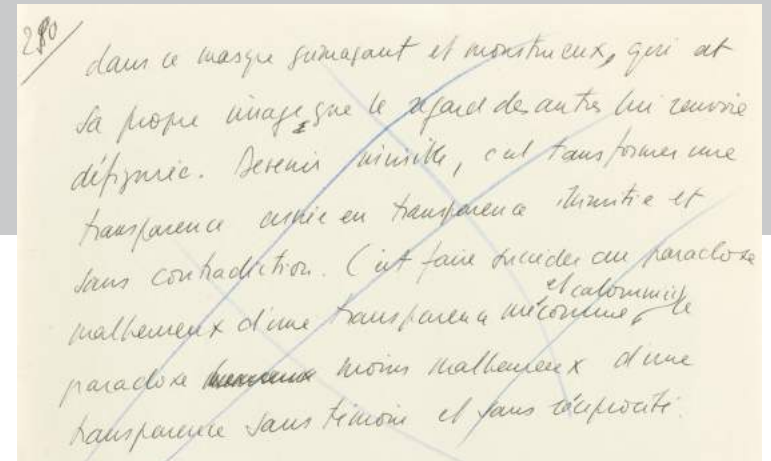 280
dans ce masque grimaçant et monstrueux, qui est
sa propre image, que le regard des autres lui renvoie
défigurée. Devenir invisible, c'est transformer une
transparence en transparence illimitée et
sans contradiction. C'est faire succéder au paradoxe
malheureux d'une transparence méconnue et calomniée, le
paradoxe moins malheureux d'une
transparence sans témoin et sans réciprocité.